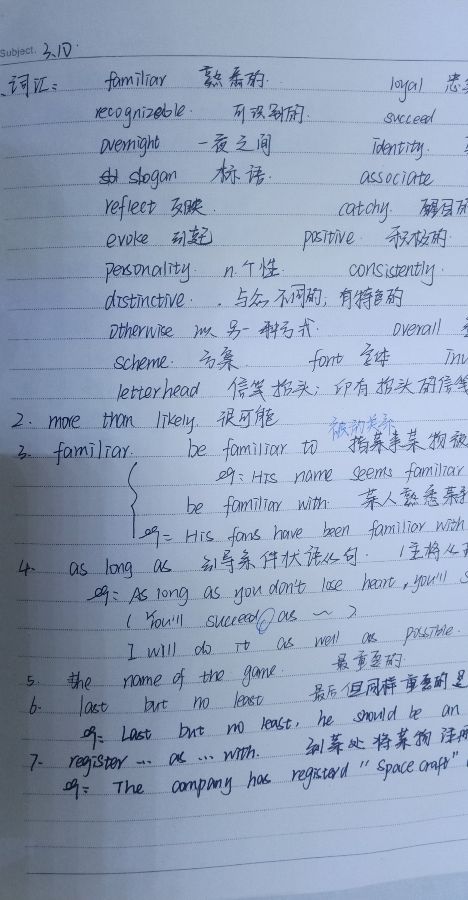 Subject. 3.10.
词汇: familiar 熟悉的. loyal
recognizable. 可识别的. succeed
overnight 一夜之间 identity.
slogan 标语. associate
reflect 反映. catchy. 醒目的
evoke 引起 positive. 积极的.
personality. n.个性. consistently.
distinctive. 与众不同的; 有特色的
otherwise 以另一种方式. overall
scheme. 方案. font 字体
letterhead 信笺抬头; 印有抬头的信笺
2. more than likely. 很可能
被动关系
3. familiar. be familiar to 指某事某物被
eg: His name seems familiar
be familiar with. 某人熟悉某
eg: His fans have been familiar with
4. as long as 引导条件状语从句. (主将从
eg: As long as you don't lose heart, you'll
( You'll succeed, as ~ )
I will do it as well as possible.
5. the name of the game. 最重要的
6. last but no least 最后但同样重要的是
eg: Last but no least, he should be an
7. register ... as ... with. 到某处将某物注册
eg: The company has registerd "Spacecraft"